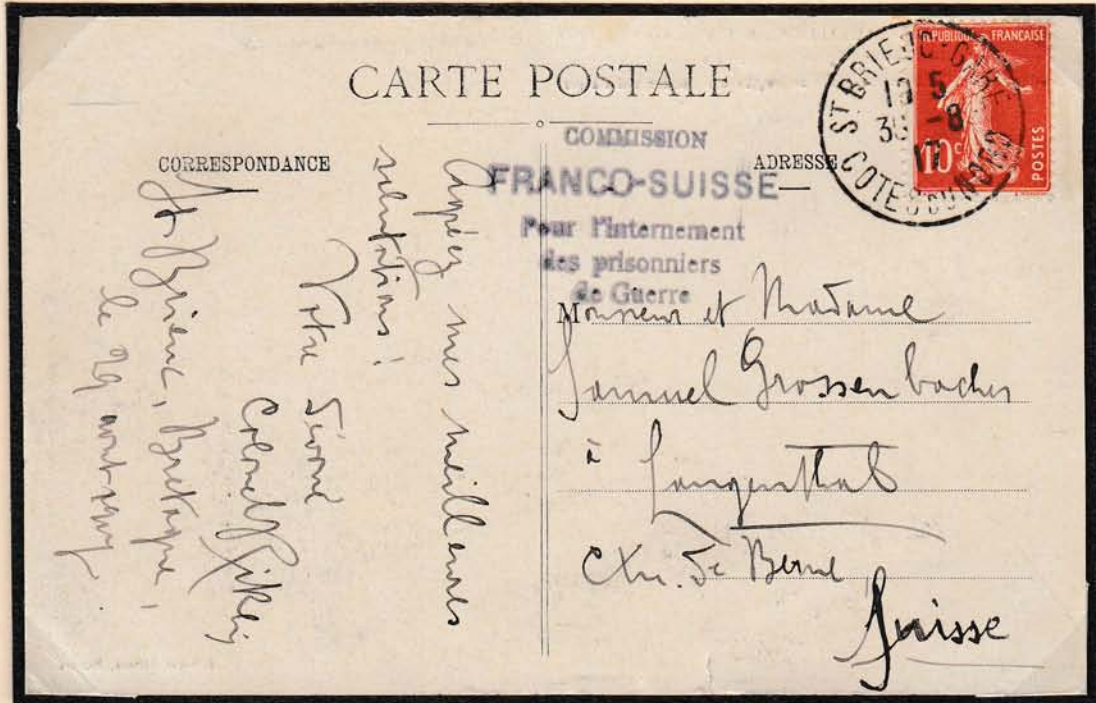 CARTE POSTALE
CORRESPONDANCE
ADRESSE
COMMISSION
FRANCO-SUISSE
Pour l'Internement
des prisonniers
de Guerre
RÉPUBLIQUE FRANÇAISE
10 c
POSTES
ST BRIEUC-GARE
19 5
30 -8
17
COTES DU NORD
Agréez mes meilleures
salutations!
Votre dévoué
Colonel
St Brieuc, Bretagne,
le 29 août
Monsieur et Madame
Samuel Grossenbacher
à Langenthal
Ctn. de Berne
Suisse